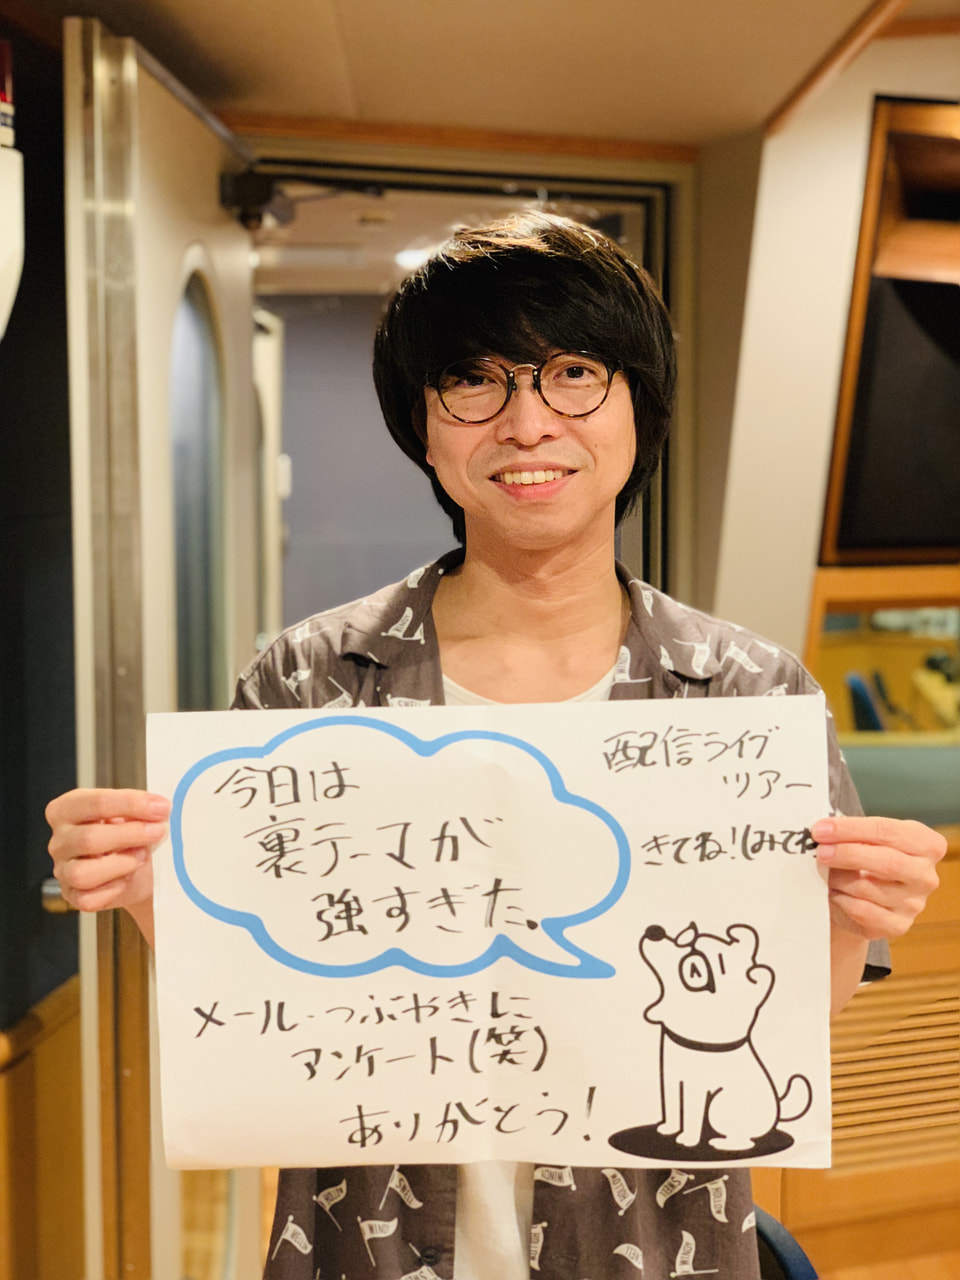 今日は
裏テーマが
強すぎた。
配信ライブ
ツアー
きてね!(みてね
メール・つぶやきに
アンケート(笑)
ありがとう!